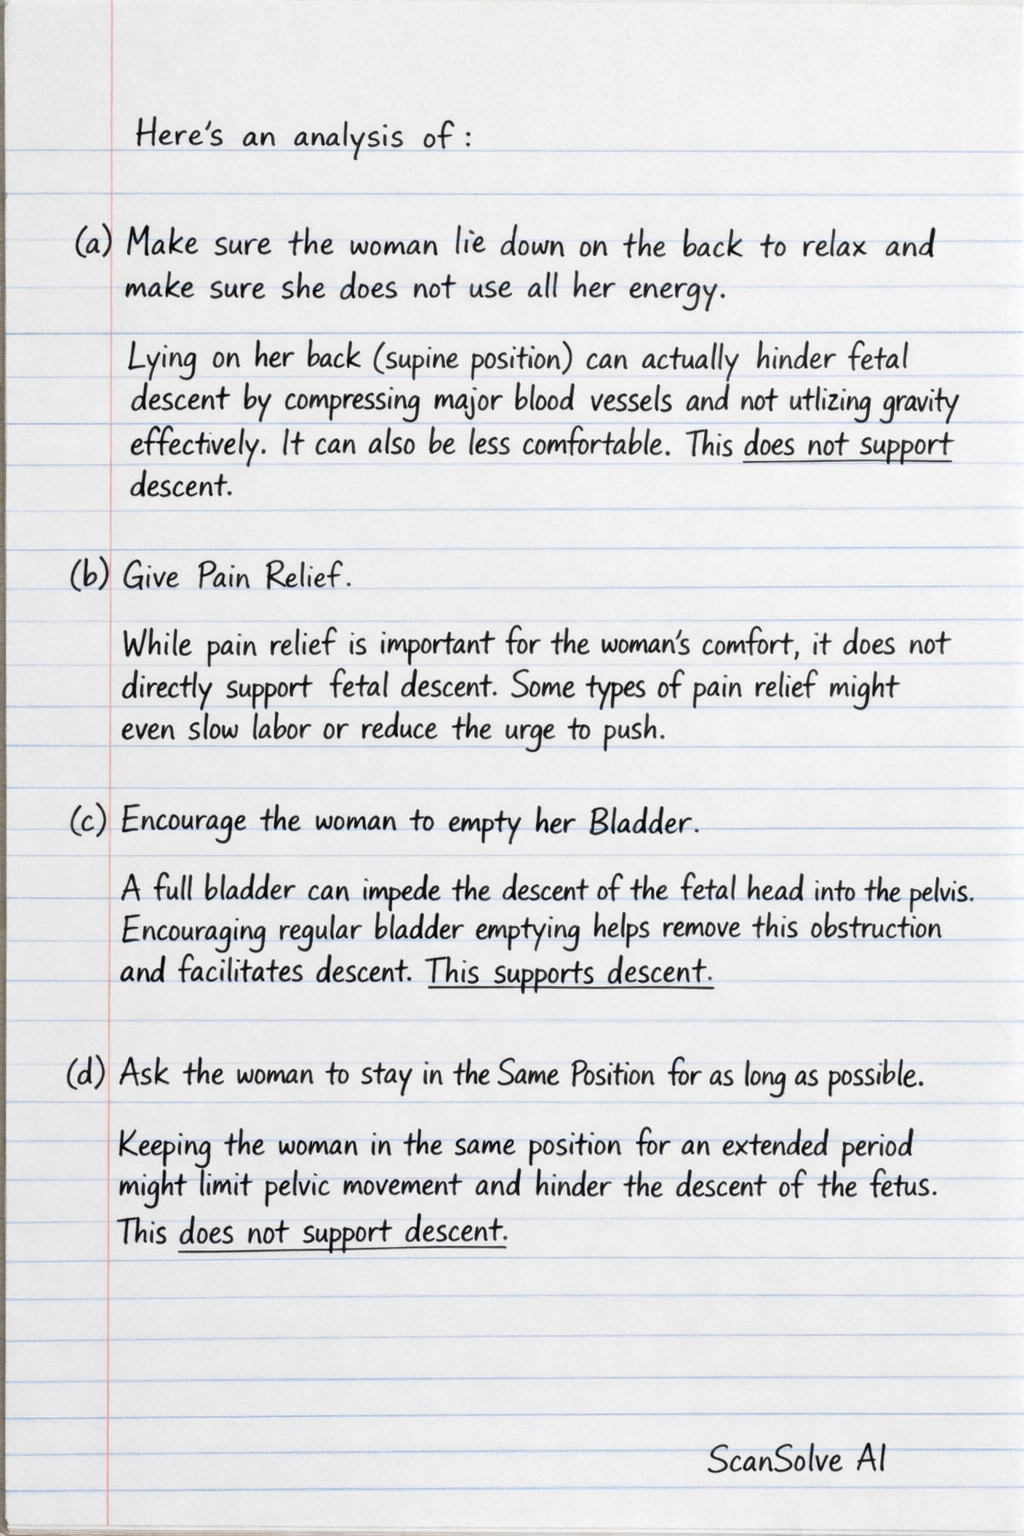 Here's an analysis of :
(a) Make sure the woman lie down on the back to relax and
make sure she does not use all her energy.
Lying on her back (supine position) can actually hinder fetal
descent by compressing major blood vessels and not utlizing gravity
effectively. It can also be less comfortable. This does not support
descent.
(b) Give Pain Relief.
While pain relief is important for the woman's comfort, it does not
directly support fetal descent. Some types of pain relief might
even slow labor or reduce the urge to push.
(c) Encourage the woman to empty her Bladder.
A full bladder can impede the descent of the fetal head into the pelvis.
Encouraging regular bladder emptying helps remove this obstruction
and facilitates descent. This supports descent.
(d) Ask the woman to stay in the Same Position for as long as possible.
Keeping the woman in the same position for an extended period
might limit pelvic movement and hinder the descent of the fetus.
This does not support descent.
ScanSolve AI